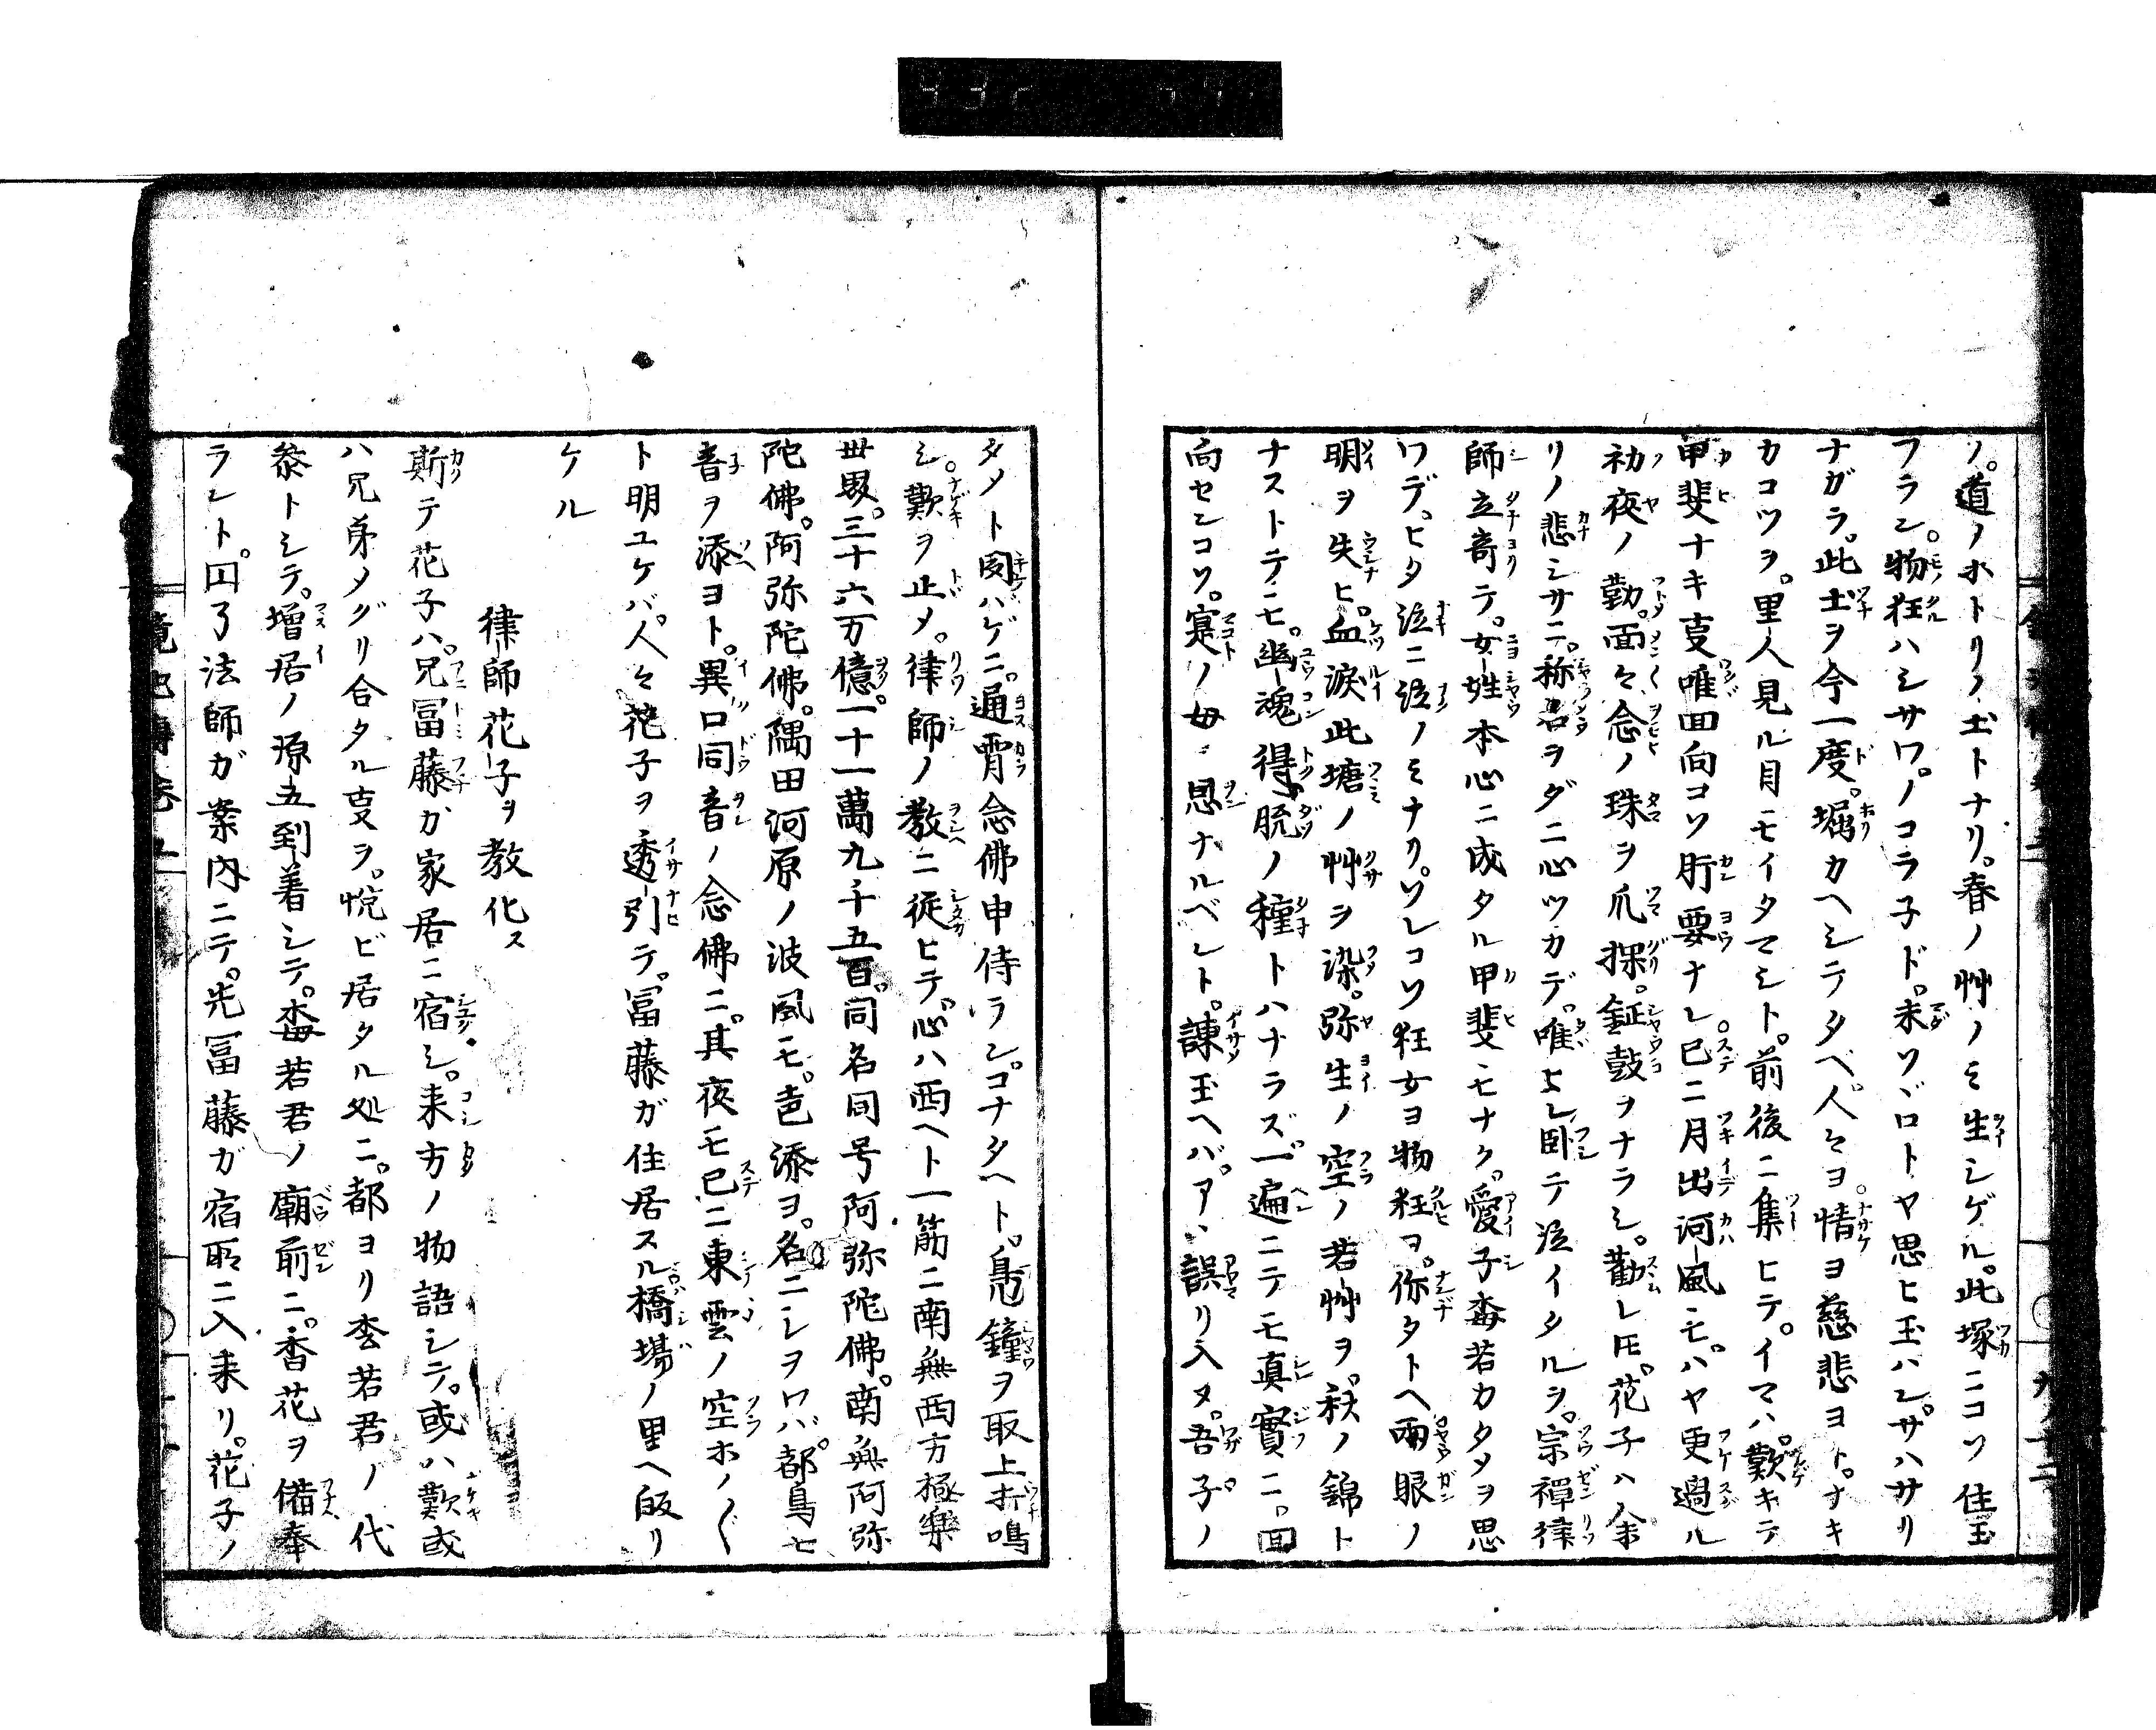 ノ。道ノホトリノ土トナリ。春ノ艸ノミ生シゲル。此塚ニコソ住玉
フラン。物狂ハシサワ。ノコラ子ド。未ソヾロトヤ思ヒ玉ハン。サハサリ
ナガラ。此土ヲ今一度。堀カヘシテタベ。人々ヨ情ヨ慈悲ヨト。ナキ
カコツヲ。里人見ル目モイタマシト。前後ニ集ヒテ。イマハ。歎キテ
甲斐ナキ支唯回向コソ肝要ナレ已ニ月出河風モ。ハヤ更過ル
初夜ノ勤。面々念ノ珠ヲ爪探。鉦鼓ヲナラシ。勸レ𪜈。花子ハ余
リノ悲シサニ。称名ヲダニ心ツカデ。唯ヒレ臥テ泣イタルヲ。宗禪律
師立寄テ。女姓本心ニ成タル甲斐モナク。愛子梅若カタメヲ思
ワデ。ヒタ泣ニ泣ノミナリ。ソレコソ狂女ヨ物狂ヨ。你タトヘ両眼ノ
明ヲ失ヒ。血涙此塘ノ艸ヲ染。弥生ノ空ノ若艸ヲ。秋ノ錦ト
ナストテモ。幽魂得脱ノ種トハナラズ。一遍ニテモ真實ニ。回
向センコソ。寔ノ母ノ恩ナルベシト。諫玉ヘバ。アヽ誤リ入タ。吾子ノ
タメト聞ハゲニ。通宵念佛申侍ラン。コナタヘト。鳧鐘ヲ取上打鳴
シ。歎ヲ止メ。律師ノ教ニ従ヒテ。心ハ西ヘト一筋ニ南無西方極樂
世界。三十六万億。一十一萬九千五百。同名同号阿弥陀佛。南無阿弥
陀佛。阿弥陀佛。隅田河原ノ波風モ。声添ヨ。名ニシヲワバ。都鳥モ
音ヲ添ヨト。異口同音ノ念佛ニ。其夜モ已ニ東雲ノ空ホノ〳〵
ト明ユケバ。人々花子ヲ透引テ。冨藤ガ住居スル橋場ノ里ヘ皈リ
ケル
律師花子ヲ教化ス
斯テ花子ハ。兄冨藤ガ家居ニ宿シ。来方ノ物語シテ。或ハ歎或
ハ兄弟メグリ合タル支ヲ。悦ビ居タル処ニ。都ヨリ松若君ノ代
参トシテ。増居ノ源五到着シテ。梅若君ノ廟前ニ。香花ヲ備奉
ラント。円了法師ガ案内ニテ。先冨藤ガ宿所ニ入来リ。花子ノ